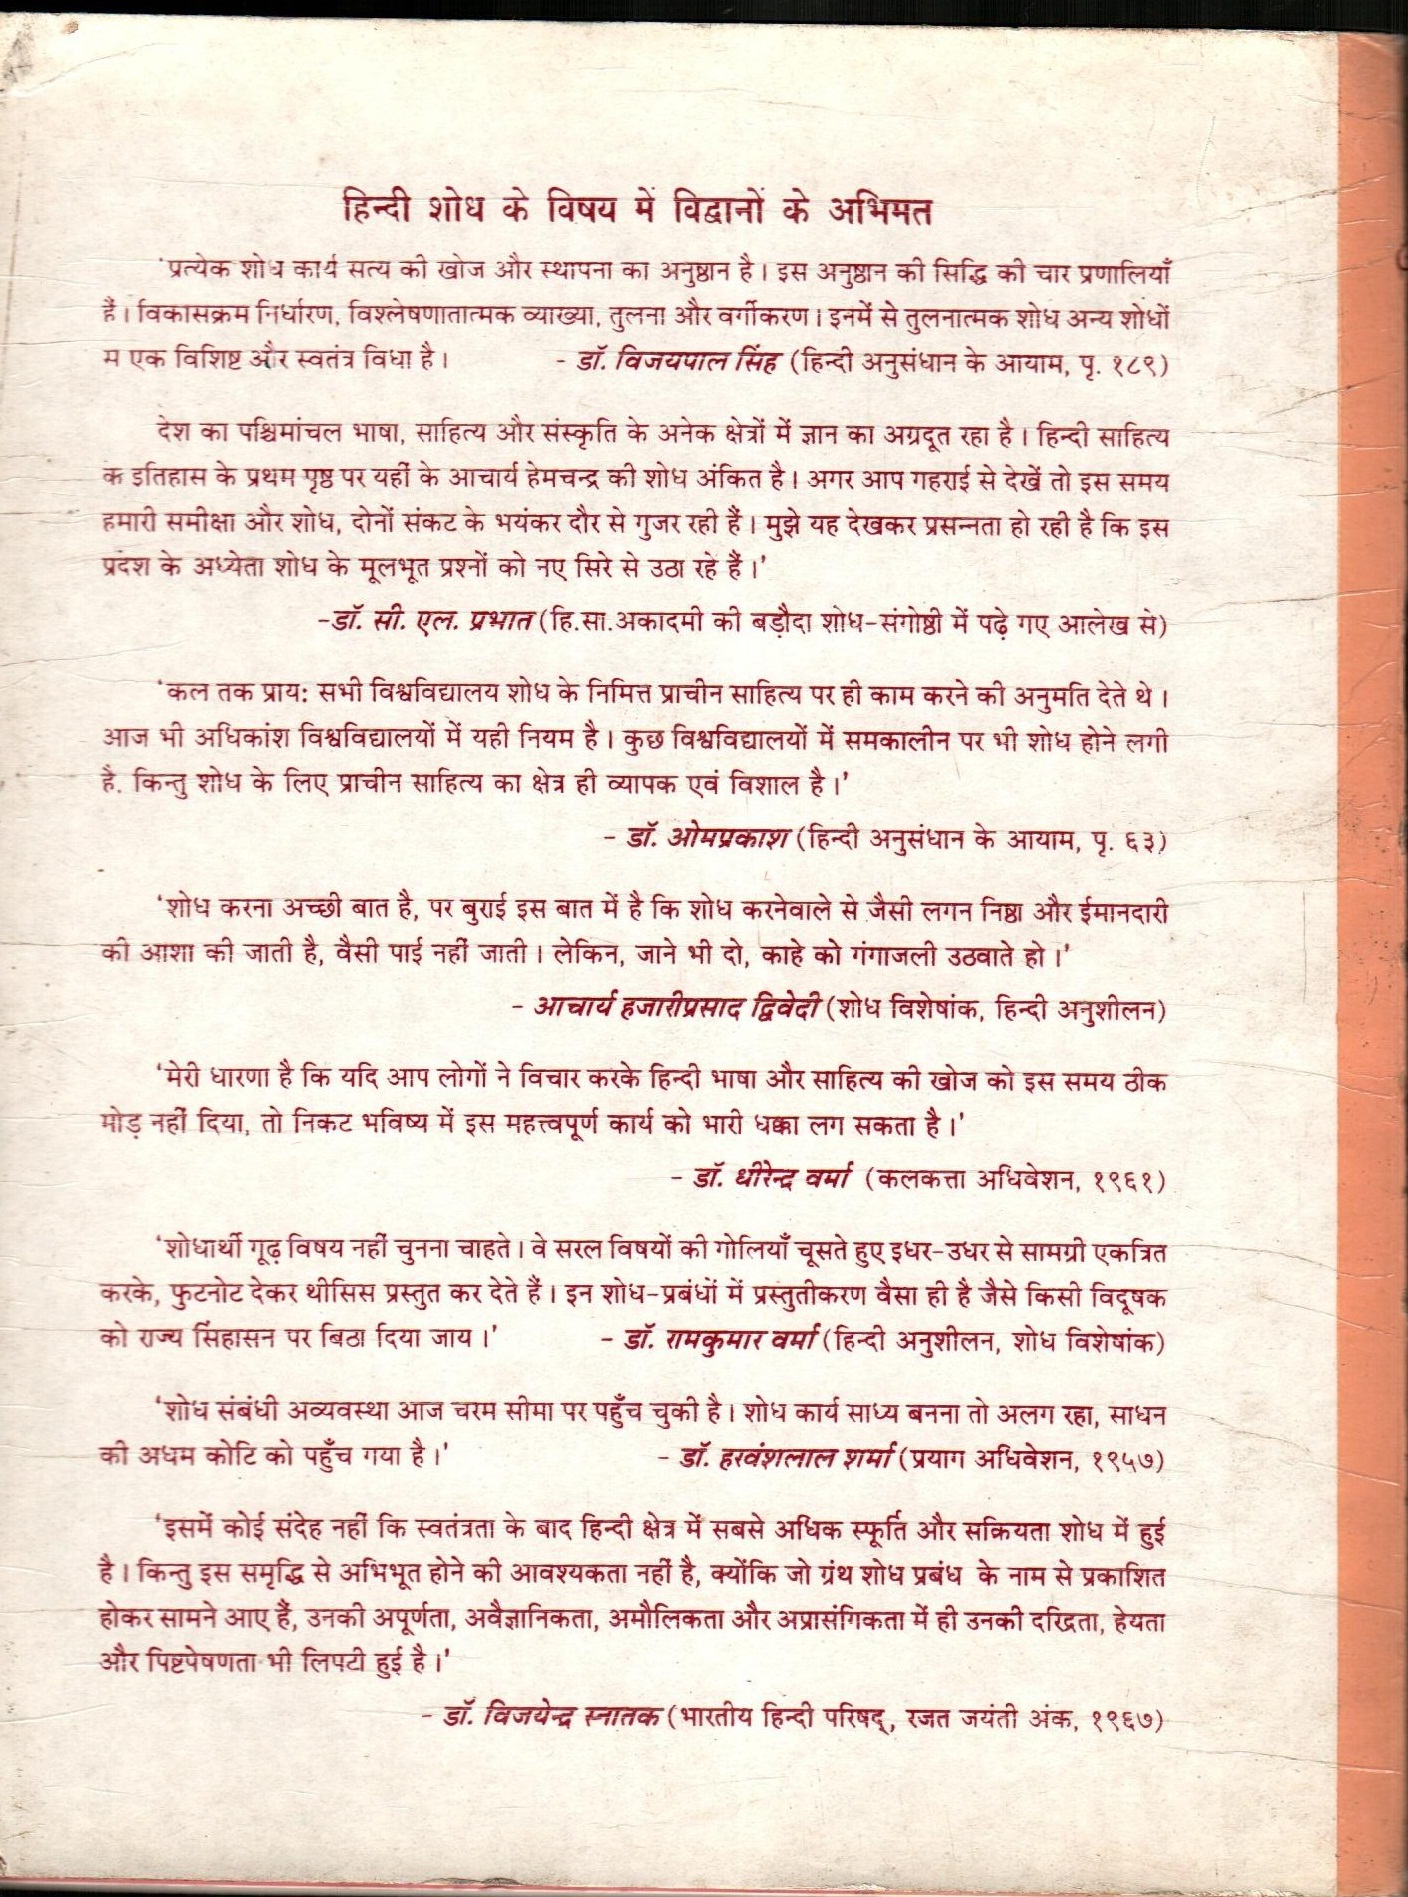 हिन्दी शोध के विषय में विद्वानों के अभिमत
'प्रत्येक शोध कार्य सत्य की खोज और स्थापना का अनुष्ठान है। इस अनुष्ठान की सिद्धि की चार प्रणालियाँ
हैं। विकासक्रम निर्धारण, विश्लेषणातात्मक व्याख्या, तुलना और वर्गीकरण। इनमें से तुलनात्मक शोध अन्य शोधों
म एक विशिष्ट और स्वतंत्र विधा है। - डॉ. विजयपाल सिंह (हिन्दी अनुसंधान के आयाम, पृ. १८९)
देश का पश्चिमांचल भाषा, साहित्य और संस्कृति के अनेक क्षेत्रों में ज्ञान का अग्रदूत रहा है। हिन्दी साहित्य
क इतिहास के प्रथम पृष्ठ पर यहीं के आचार्य हेमचन्द्र की शोध अंकित है। अगर आप गहराई से देखें तो इस समय
हमारी समीक्षा और शोध, दोनों संकट के भयंकर दौर से गुजर रही हैं। मुझे यह देखकर प्रसन्नता हो रही है कि इस
प्रदेश के अध्येता शोध के मूलभूत प्रश्नों को नए सिरे से उठा रहे हैं।'
-डॉ. सी. एल. प्रभात (हि.सा.अकादमी की बड़ौदा शोध-संगोष्ठी में पढ़े गए आलेख से)
'कल तक प्राय: सभी विश्वविद्यालय शोध के निमित्त प्राचीन साहित्य पर ही काम करने की अनुमति देते थे।
आज भी अधिकांश विश्वविद्यालयों में यही नियम है। कुछ विश्वविद्यालयों में समकालीन पर भी शोध होने लगी
है. किन्तु शोध के लिए प्राचीन साहित्य का क्षेत्र ही व्यापक एवं विशाल है।'
- डॉ. ओमप्रकाश (हिन्दी अनुसंधान के आयाम, पृ. ६३)
'शोध करना अच्छी बात है, पर बुराई इस बात में है कि शोध करनेवाले से जैसी लगन निष्ठा और ईमानदारी
की आशा की जाती है, वैसी पाई नहीं जाती। लेकिन, जाने भी दो, काहे को गंगाजली उठवाते हो।'
- आचार्य हजारीप्रसाद द्विवेदी (शोध विशेषांक, हिन्दी अनुशीलन)
'मेरी धारणा है कि यदि आप लोगों ने विचार करके हिन्दी भाषा और साहित्य की खोज को इस समय ठीक
मोड़ नहीं दिया, तो निकट भविष्य में इस महत्त्वपूर्ण कार्य को भारी धक्का लग सकता है।'
- डॉ. धीरेन्द्र वर्मा (कलकत्ता अधिवेशन, १९६१)
'शोधार्थी गूढ़ विषय नहीं चुनना चाहते। वे सरल विषयों की गोलियाँ चूसते हुए इधर-उधर से सामग्री एकत्रित
करके, फुटनोट देकर थीसिस प्रस्तुत कर देते हैं। इन शोध-प्रबंधों में प्रस्तुतीकरण वैसा ही है जैसे किसी विदूषक
को राज्य सिंहासन पर बिठा दिया जाय।' - डॉ. रामकुमार वर्मा (हिन्दी अनुशीलन, शोध विशेषांक)
'शोध संबंधी अव्यवस्था आज चरम सीमा पर पहुँच चुकी है। शोध कार्य साध्य बनना तो अलग रहा, साधन
की अधम कोटि को पहुँच गया है।' - डॉ. हरवंशलाल शर्मा (प्रयाग अधिवेशन, १९५७)
'इसमें कोई संदेह नहीं कि स्वतंत्रता के बाद हिन्दी क्षेत्र में सबसे अधिक स्फूर्ति और सक्रियता शोध में हुई
है। किन्तु इस समृद्धि से अभिभूत होने की आवश्यकता नहीं है, क्योंकि जो ग्रंथ शोध प्रबंध के नाम से प्रकाशित
होकर सामने आए हैं, उनकी अपूर्णता, अवैज्ञानिकता, अमौलिकता और अप्रासंगिकता में ही उनकी दरिद्रता, हेयता
और पिष्टपेषणता भी लिपटी हुई है।'
- डॉ. विजयेन्द्र स्नातक (भारतीय हिन्दी परिषद्, रजत जयंती अंक, १९६७)